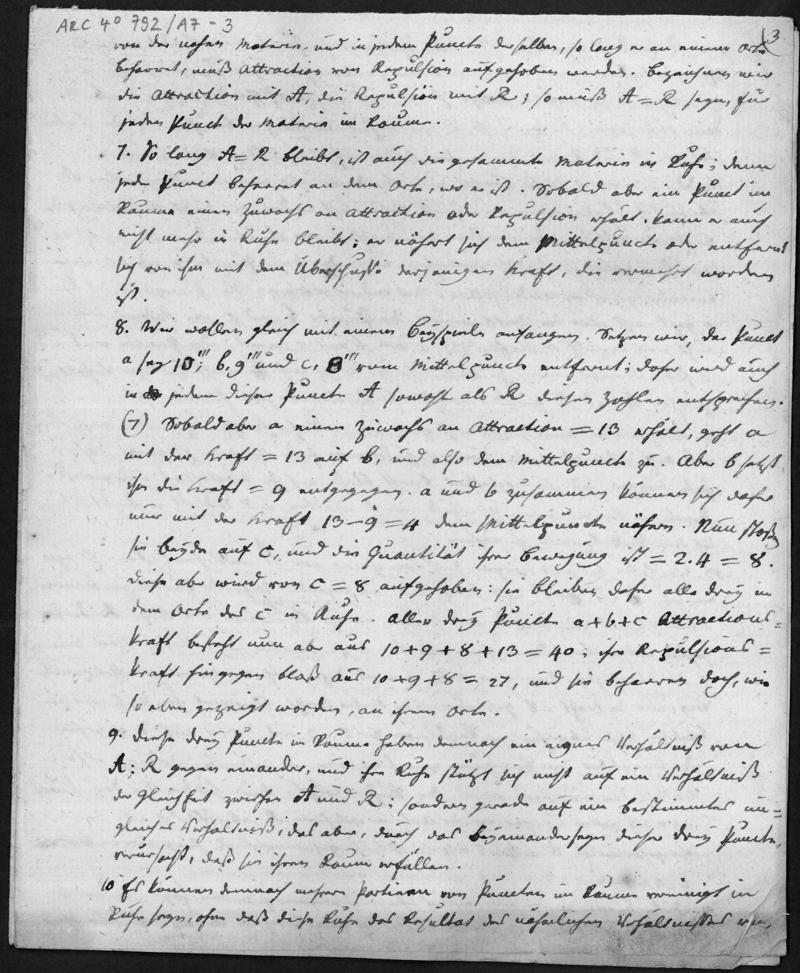 ARC 4° 792/A7-3
3
von der nahen Materie, und in jedem Puncte derselben, so lang er an einem Orte
beharret, muß Attraction von Repulsion aufgehoben werden. Bezeichnen wir
die Attraction mit A, die Repulsion mit R; so muß A=R seyn, für
jeden Punct der Materie im Raume.
7. So lang A=R bleibt, ist auch die gesammte Materie in Ruhe; denn
jeder Punct beharret an dem Orte, wo er ist. Sobald aber ein Punct im
Raume einen Zuwachs an Attraction oder Repulsion erhält, kann er auch
nicht mehr in Ruhe bleiben; er nähert sich dem Mittelpuncte oder entfernt
sich von ihm mit dem Überschusse derjenigen Kraft, die vermehrt worden
ist.
8. Wir wollen gleich mit einem Beyspiele anfangen. Setzen wir, der Punct
a sey 10''', b, 9''' und c, 8''' vom Mittelpuncte entfernt; daher wird auch
in jedem dieser Puncte A sowohl als R diesen Zahlen entsprechen.
(7) Sobald aber a einen Zuwachs an Attraction = 13 erhält, geht a
mit der Kraft = 13 auf b, und also dem Mittelpuncte zu. Aber b setzt
ihm die Kraft = 9 entgegen. a und b zusammen können sich daher
nur mit der Kraft 13-9=4 dem Mittelpuncte nähern. Nun stoßen
sie beyde auf c, und die Quantität ihrer Bewegung ist = 2.4 = 8.
Diese aber wird von c = 8 aufgehoben: sie bleiben daher alle drey in
dem Orte des c in Ruhe. Aller drey Puncte a+b+c Attractions=
kraft besteht nun aber aus 10+9+8+13=40; ihre Repulsions=
kraft hingegen bloß aus 10+9+8=27, und sie beharren doch, wie
so eben gezeigt worden, an ihrem Orte.
9. Diese drey Puncte im Raume haben demnach ein eignes Verhältniß von
A:R gegen einander, und ihre Ruhe stützt sich nicht auf ein Verhältniß
der Gleichheit zwischen A und R; sondern gerade auf ein bestimmtes un=
gleiches Verhältniß; das aber, durch das Beyeinanderseyn dieser drey Puncte,
verursacht, daß sie ihren Raum erfüllen.
10 Es können demnach mehrere Partieen von Puncten im Raume vereinigt in
Ruhe seyn, ohne daß diese Ruhe das Resultat des nähmlichen Verhältnisses von